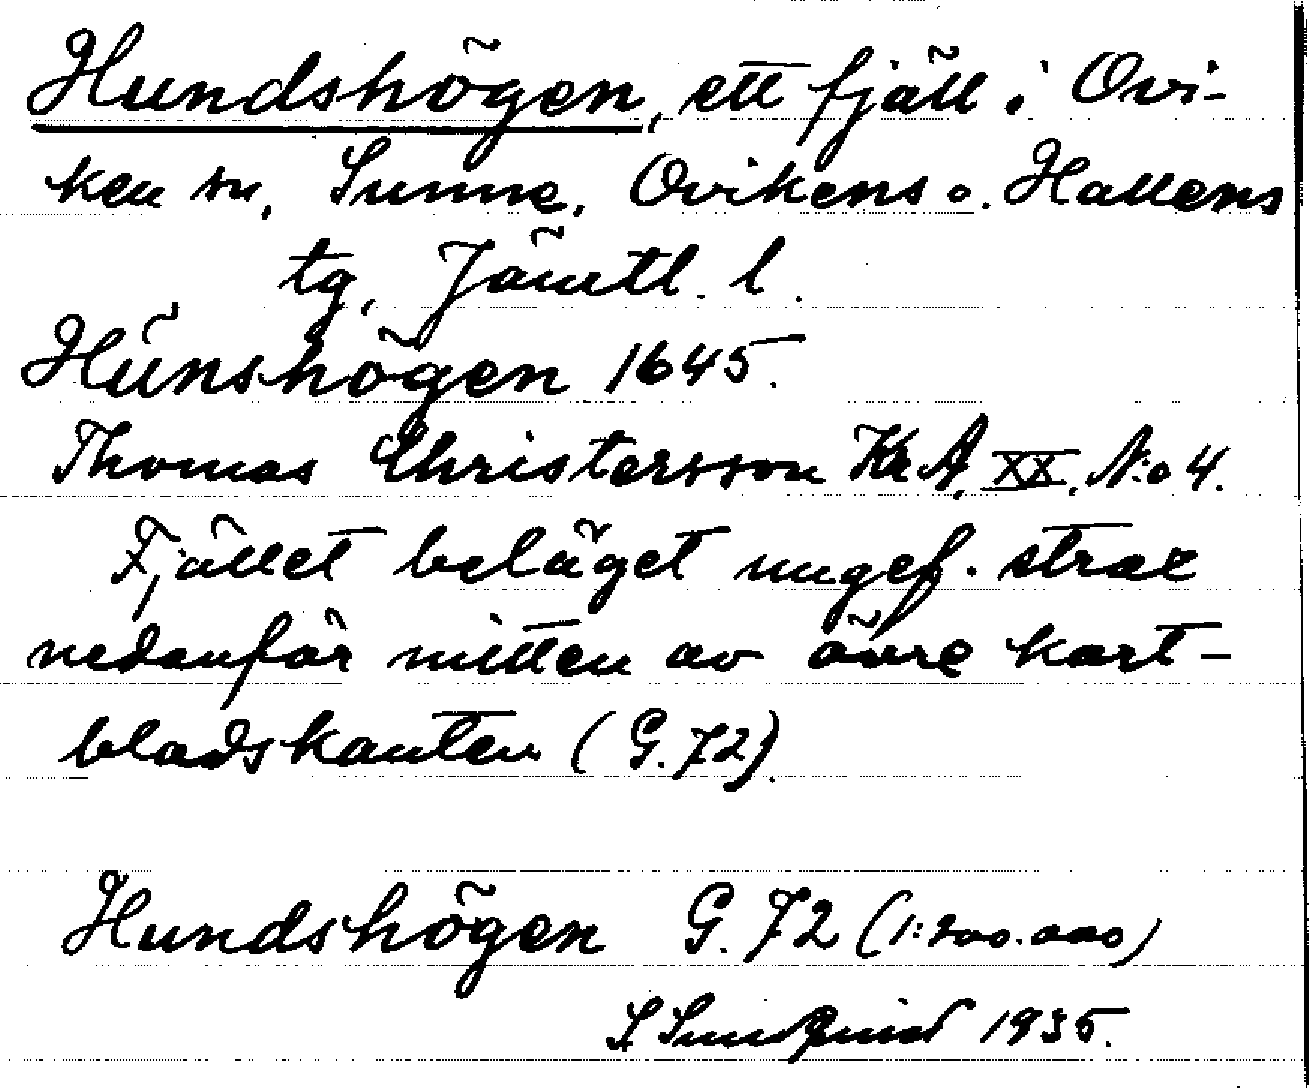 Hundshögen, ett fjäll i Ovi-
ken sn, Sunne, Ovikens o. Hallens
tg, Jämtl. l.
Hünshögen 1645.
Thomas Christersson Kr. A. XX. N:o 4.
Fjället beläget ungef. strax
nedanför mitten av övre kart-
bladskanten (G. 72).
Hundshögen G. 72 (1:200.000)
1935.